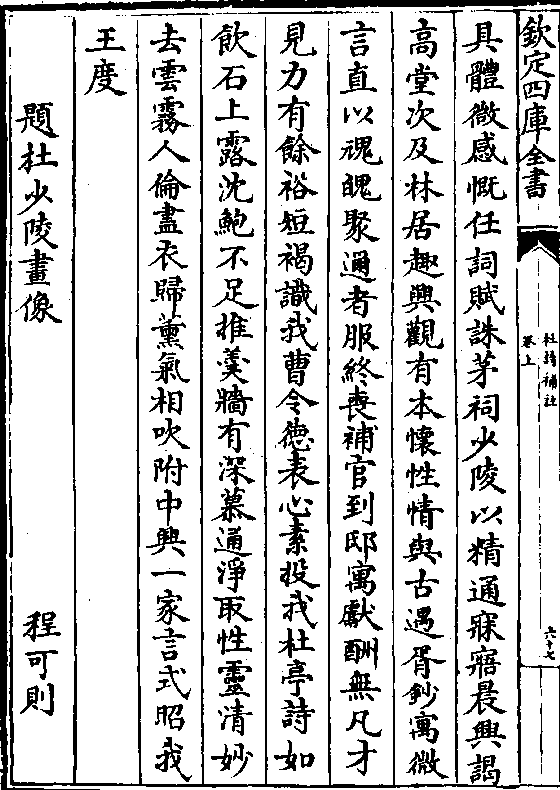 欽定四庫全書
杜詩補註
卷上
六十七
具體微感慨任詞賦誅茅祠少陵以精通寐寤晨興謁
高堂次及林居趣興觀有本懷性情與古遇胥鈔寓微
言直以魂魄聚通者服終喪補官到邸寓獻酬無凡才
見力有餘裕短褐識我曹令德表心素投我杜亭詩如
飲石上露沈鮑不足推羹牆有深慕通淨取性靈清妙
去雲霧人倫盡衣歸薰氣相吹附中興一家言式昭我
王度
題杜少陵畫像 程可則